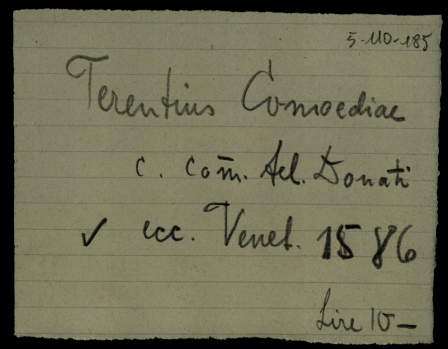 5-110-185
Terentius Comoediae
c. com̄. Ael. Donati
✓ ecc. Venet. 1586
Lire 10-